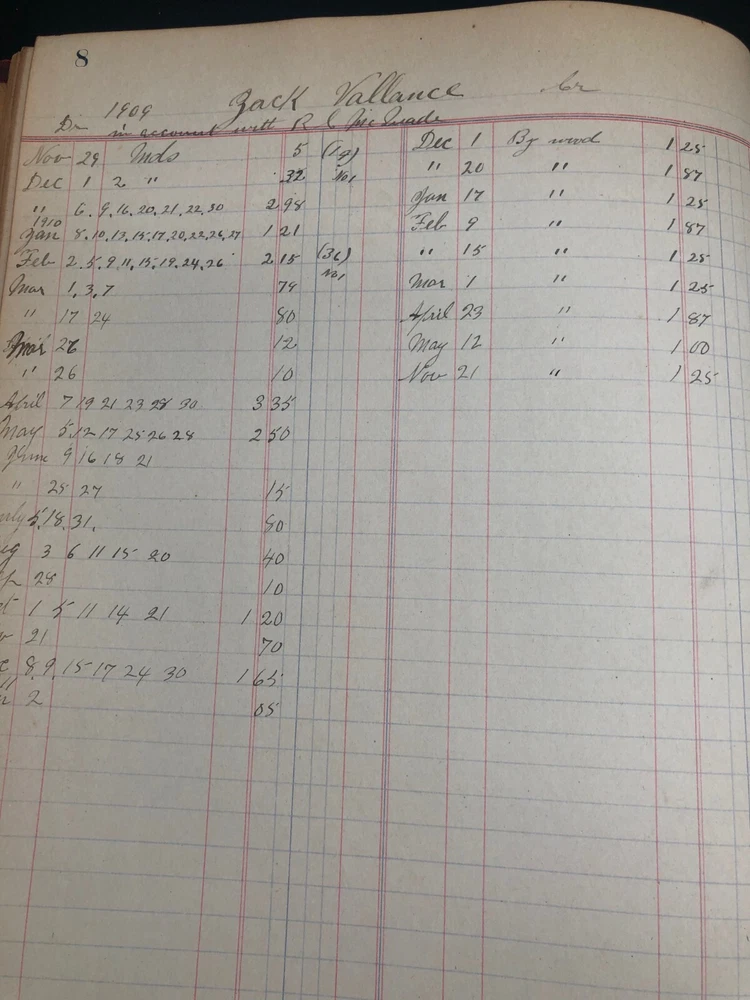 8
1909 Zack Vallance Cr
Dr in account with R C McQuade
Nov 29 Mds 5 (19)
Dec 1 2 " 32 No1
" 6.9.16.20.21.22.30 2 98
1910
Jan 8.10.13.15.17.20.22.26.27 1 21
Feb 2.5.9.11.15.19.24.26 2 15 (36)
No1
Mar 1.3.7 79
" 17 24 80
Mar 26 12
" 26 10
April 7 19 21 23 28 30 3 35
May 5.12 17 25 26 28 2 50
June 9 16 18 21
" 25 27 15
uly 5.18.31. 80
ug 3 6 11 15 20 40
28 10
t 1 5 11 14 21 1 20
v 21 70
c 8.9.15 17 24 30 1 65
n 2 05
Dec 1 By wood 1 25
" 20 " 1 87
Jan 17 " 1 25
Feb 9 " 1 87
" 15 " 1 25
Mar 1 " 1 25
April 23 " 1 87
May 12 " 1 00
Nov 21 " 1 25